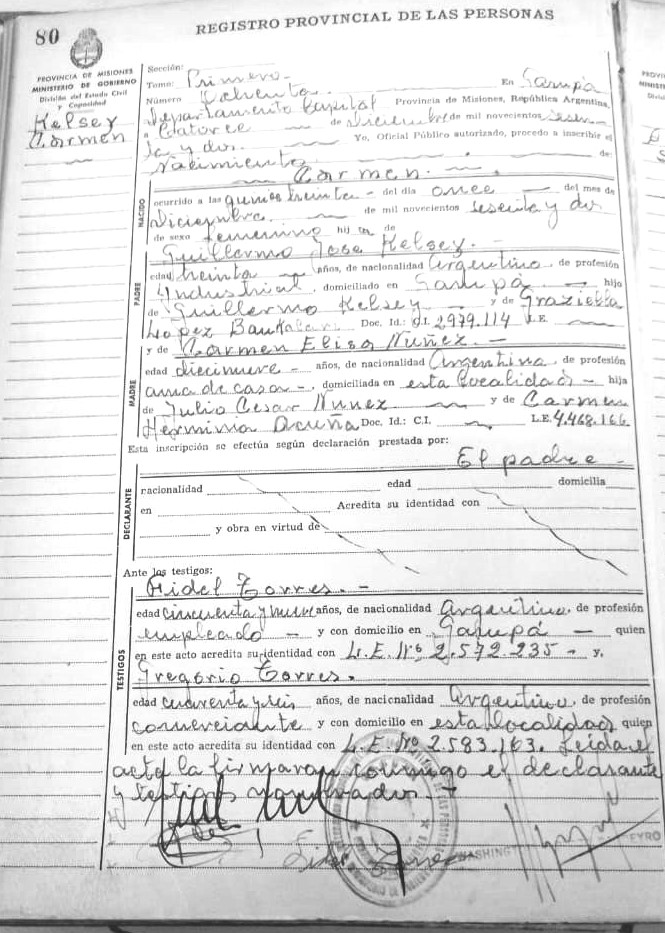 80
REGISTRO PROVINCIAL DE LAS PERSONAS
PROVINCIA DE MISIONES
MINISTERIO DE GOBIERNO
División del Estado Civil
y Capacidad
Kelsey
Carmen
Sección:
Tomo: Primero
Número Ochenta En Garupá
Departamento Capital Provincia de Misiones, República Argentina,
a Catorce de Diciembre de mil novecientos sesen
ta y dos. Yo, Oficial Público autorizado, procedo a inscribir el
Nacimiento de:
Carmen.
NACIDO
ocurrido a las quince treinta del día once del mes de
Diciembre de mil novecientos sesenta y dos
de sexo femenino hij a de
Guillermo Jose Kelsey.
PADRE
edad treinta años, de nacionalidad Argentino, de profesión
Industrial, domiciliado en Garupá hijo
de Guillermo Kelsey y de Graziella
Lopez Doc. Id.: C.I. 2979.114 L.E.
MADRE
y de Carmen Elisa Nuñez.
edad diecinueve años, de nacionalidad Argentina, de profesión
ama de casa, domiciliada en esta localidad hija
de Julio Cesar Nunez y de Carmen
Herminia Acuña Doc. Id.: C.I. L.E. 4.468.166
Esta inscripción se efectúa según declaración prestada por:
El padre
DECLARANTE
nacionalidad edad domicilia
en Acredita su identidad con
y obra en virtud de
Ante los testigos:
TESTIGOS
Fidel Torres.
edad cincuenta y nueve años, de nacionalidad Argentino, de profesión
empleado y con domicilio en Garupá quien
en este acto acredita su identidad con L.E. Nº 2.572.235 y,
Gregorio Torres.
edad cuarenta y seis años, de nacionalidad Argentino, de profesión
comerciante y con domicilio en esta localidad quien
en este acto acredita su identidad con L.E. Nº 2.583.163. Leida el
acta la firmaron conmigo el declarante
y testigos nombrados.